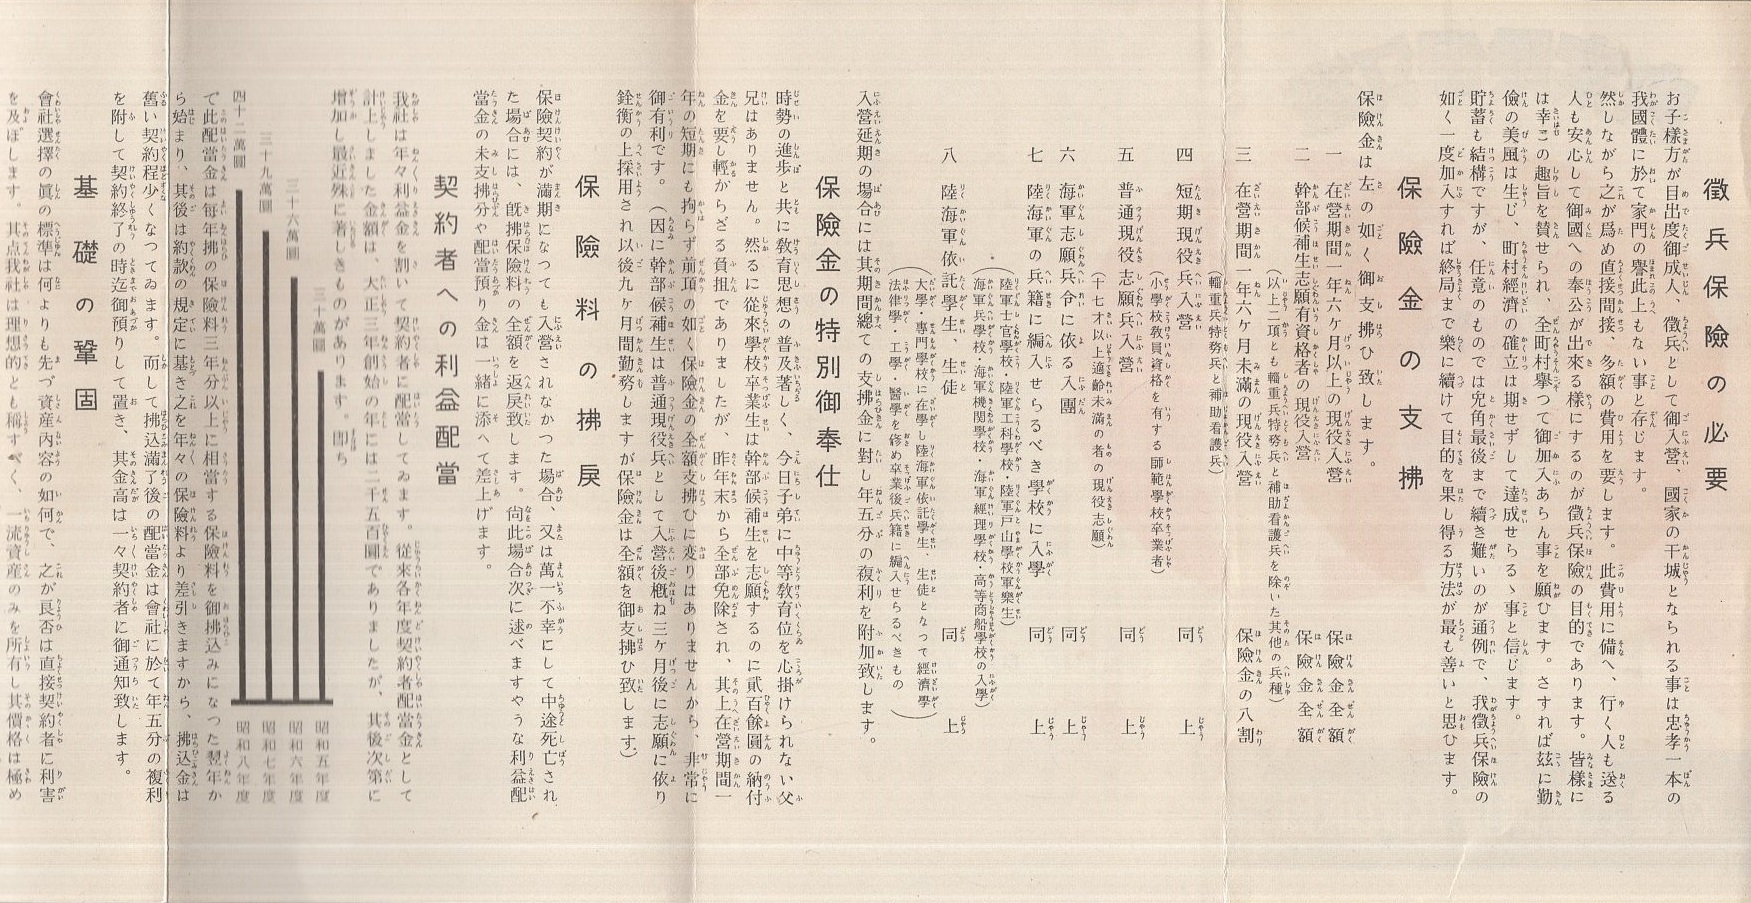 徵兵保險の必要
お子樣方が目出度御成人、徵兵として御入營、國家の干城となられる事は忠孝一本の
我國體に於て家門の譽此上もない事と存じます。
然しながら之が爲め直接間接、多額の費用を要します。此費用に備へ、行く人も送る
人も安心して御國への奉公が出來る樣にするのが徵兵保險の目的であります。皆樣に
は幸この趣旨を賛せられ、全町村擧つて御加入あらん事を願ひます。さすれば玆に勤
儉の美風は生じ、町村經濟の確立は期せずして達成せらるゝ事と信じます。
貯蓄も結構ですが、任意のものでは兎角最後まで續き難いのが通例で、我徵兵保險の
如く一度加入すれば終局まで樂に續けて目的を果し得る方法が最も善いと思ひます。
保險金の支拂
保險金は左の如く御支拂ひ致します。
一 在營期間一年六ケ月以上の現役入營 保險金全額
二 幹部候補生志願有資格者の現役入營 保險金全額
(以上二項とも輜重兵特務兵と補助看護兵を除いた其他の兵種)
三 在營期間一年六ケ月未滿の現役入營 保險金の八割
(輜重兵特務兵と補助看護兵)
四 短期現役兵入營 同上
(小學校敎員資格を有する師範學校卒業者)
五 普通現役志願兵入營 同上
(十七才以上適齡未滿の者の現役志願)
六 海軍志願兵令に依る入團 同上
七 陸海軍の兵籍に編入せらるべき學校に入學 同上
(陸軍士官學校・陸軍工科學校・陸軍戸山學校軍樂生)
海軍兵學校・海軍機關學校・海軍經理學校・高等商船學校の入學)
八 陸海軍依託學生、生徒 同上
(大學・專門學校に在學し陸海軍依託學生、生徒となつて經濟學)
法律學・工學・醫學を修め卒業後兵籍に編入せらるべきもの
入營延期の場合には其期間總ての支拂金に對し年五分の複利を附加致します。
保險金の特別御奉仕
時勢の進步と共に敎育思想の普及著しく、今日子弟に中等敎育位を心掛けられない父
兄はありません。然るに從來學校卒業生は幹部候補生を志願するのに貳百餘圓の納付
金を要し輕からざる負担でありましたが、昨年末から全部免除され、其上在營期間一
年の短期にも拘らず前項の如く保險金の全額支拂ひに變りはありませんから、非常に
御有利です。(因に幹部候補生は普通現役兵として入營後槪ね三ケ月後に志願に依り
銓衡の上採用され以後九ケ月間勤務しますが保險金は全額を御支拂ひ致します)
保險料の拂戾
保險契約が滿期になつても入營されなかつた場合、又は萬一不幸にして中途死亡され
た場合には、旣拂保險料の全額を返戾致します。尙此場合次に述べますやうな利益配
當金の未支拂分や配當預り金は一緖に添へて差上げます。
契約者への利益配當
我社は年々利益金を割いて契約者に配當してゐます。從來各年度契約者配當金として
計上しました金額は、大正三年創始の年には二千五百圓でありましたが、其後次第に
增加し最近殊に著しきものがあります。卽ち
三十萬圓 昭和五年度
三十六萬圓 昭和六年度
三十九萬圓 昭和七年度
四十二萬圓 昭和八年度
で此配當金は每年拂の保險料三年分以上に相當する保險料を御拂込みになつた翌年か
ら始まり、其後は約款の規定に基き之を年々の保險料より差引きますから、拂込金は
舊い契約程少くなつてゐます。而して拂込滿了後の配當金は會社に於て年五分の複利
を附して契約終了の時迄御預りして置き、其金高は一々契約者に御通知致します。
基礎の鞏固
會社選擇の眞の標準は何よりも先づ資産內容の如何で、之が良否は直接契約者に利害
を及ぼします。其点我社は理想的とも稱すべく、一流資産のみを所有し其價格は極め